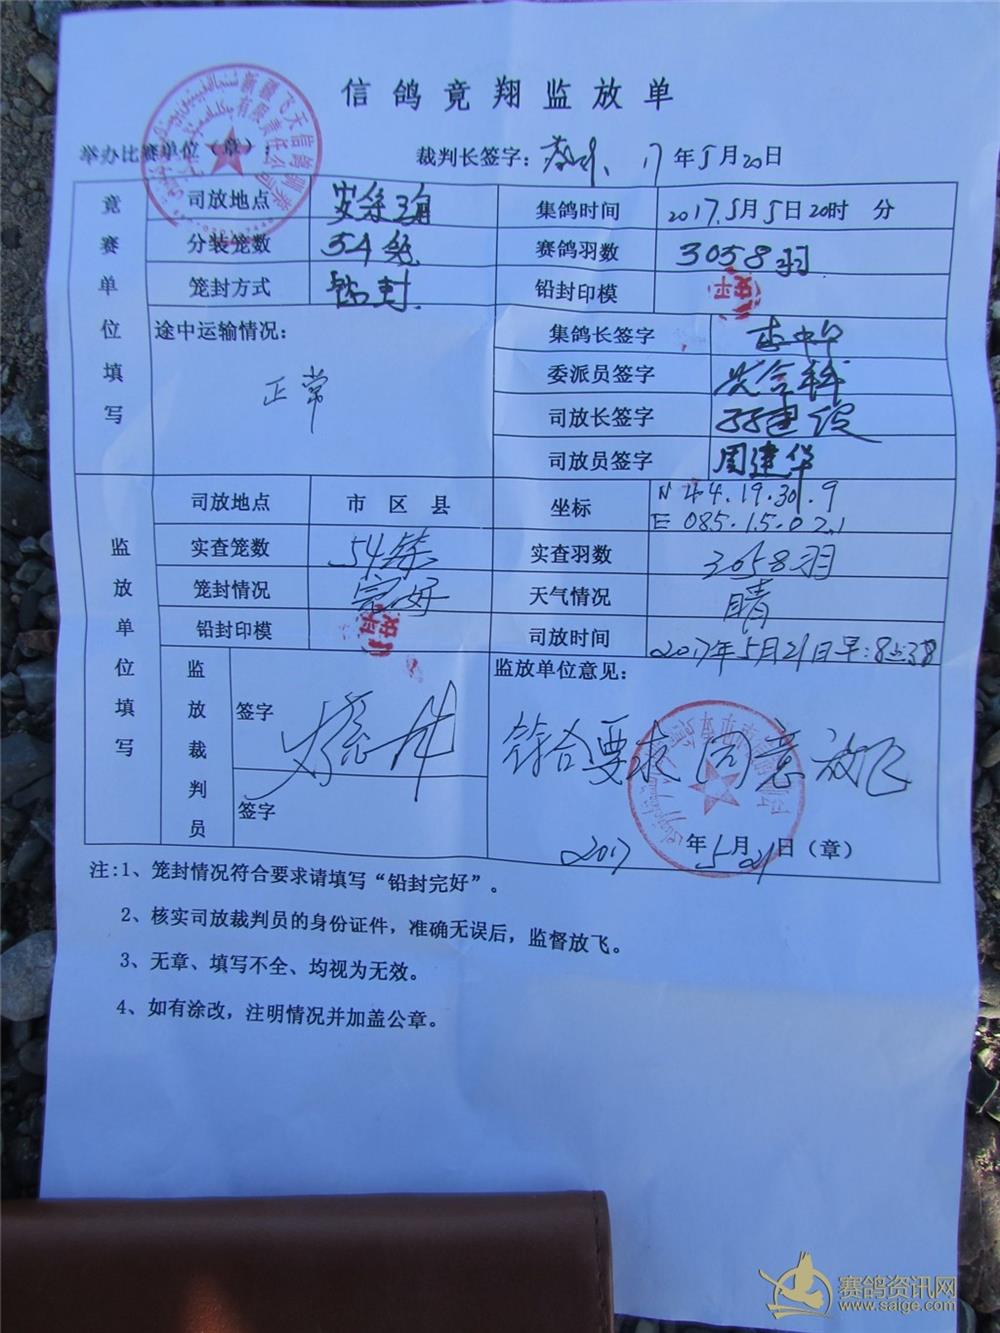 信鸽竞翔监放单
新疆飞天信鸽训养
有限责任公司
举办比赛单位（章）： 裁判长签字： 17年5月20日
竞赛单位填写
司放地点 集鸽时间 2017.5月5日20时 分
分装笼数 54笼 赛鸽羽数 3058羽
笼封方式 铅封 铅封印模
途中运输情况： 集鸽长签字
正常 委派员签字
司放长签字 孙建设
司放员签字 周建华
监放单位填写
司放地点 市 区 县 坐标 N 44.19.301.9
E 085.15.02.1
实查笼数 54笼 实查羽数 3058羽
笼封情况 完好 天气情况 晴
铅封印模 司放时间 2017年5月21日早:8点38
监放裁判员 签字 监放单位意见：
符合要求 同意放飞
签字
2017年5月21日（章）
注:1、笼封情况符合要求请填写“铅封完好”。
2、核实司放裁判员的身份证件，准确无误后，监督放飞。
3、无章、填写不全、均视为无效。
4、如有涂改，注明情况并加盖公章。
赛鸽资讯网
www.saige.com